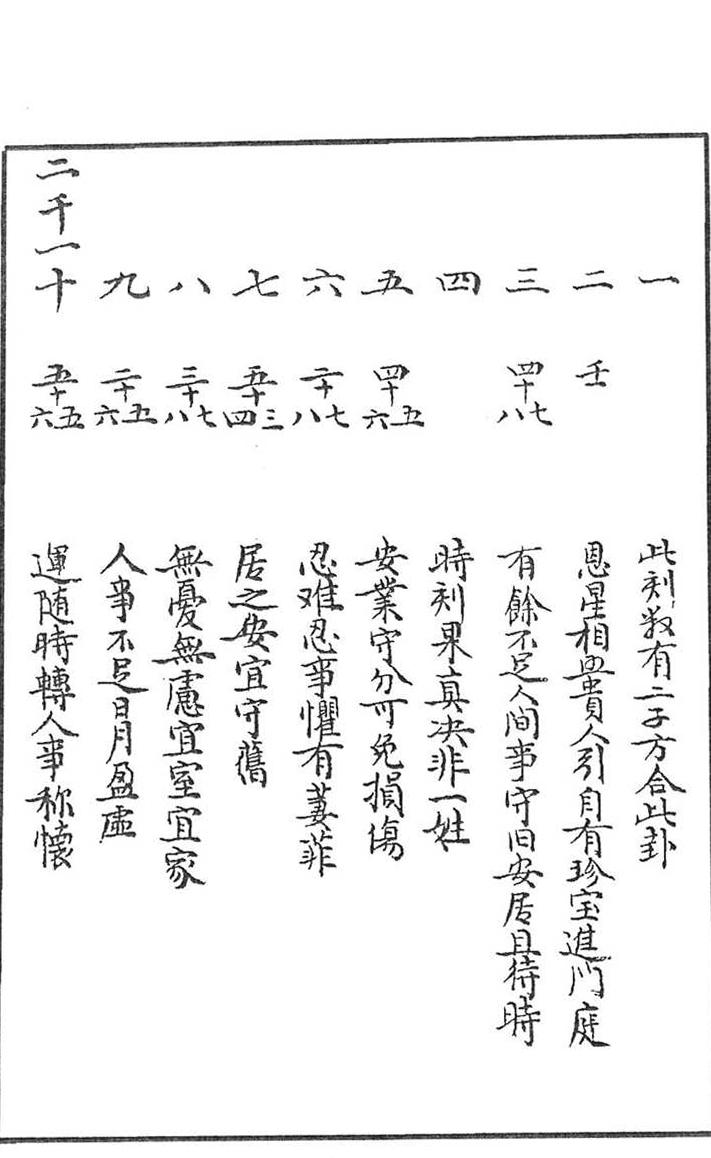 一 此刻数有二子方合此卦
二 壬 恩星相照貴人引自有珍宝進門庭
三 四十七八 有餘不足人间事守旧安居且待時
四 時刻果真决非一姓
五 四十五六 安業守分可免損傷
六 二十七八 忍难忍事懼有萋菲
七 五十三四 居之安宜守舊
八 三十七八 無憂無慮宜室宜家
九 二十五六 人事不足日月盈虛
二千一十 五十五六 運随時轉人事称懷